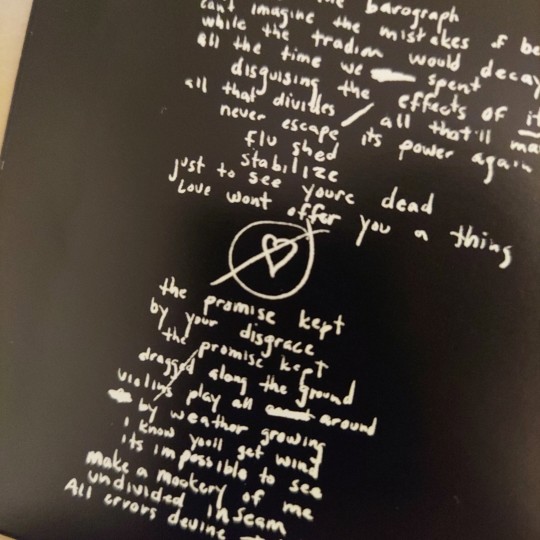 the barograph
cant imagine the mistakes of be
while the tradion would decay
all the time we spent
disguising the effects of it
all that divides / all that'll ma
never escape its power again
flu shed
stabilize
just to see youre dead
Love wont offer you a thing
the promise kept
by your disgrace
the promise kept
dragged along the ground
violins play all around
by weather growing
i know youll get wind
its impossible to see
make a mockery of me
undivided inseam
All errors devine